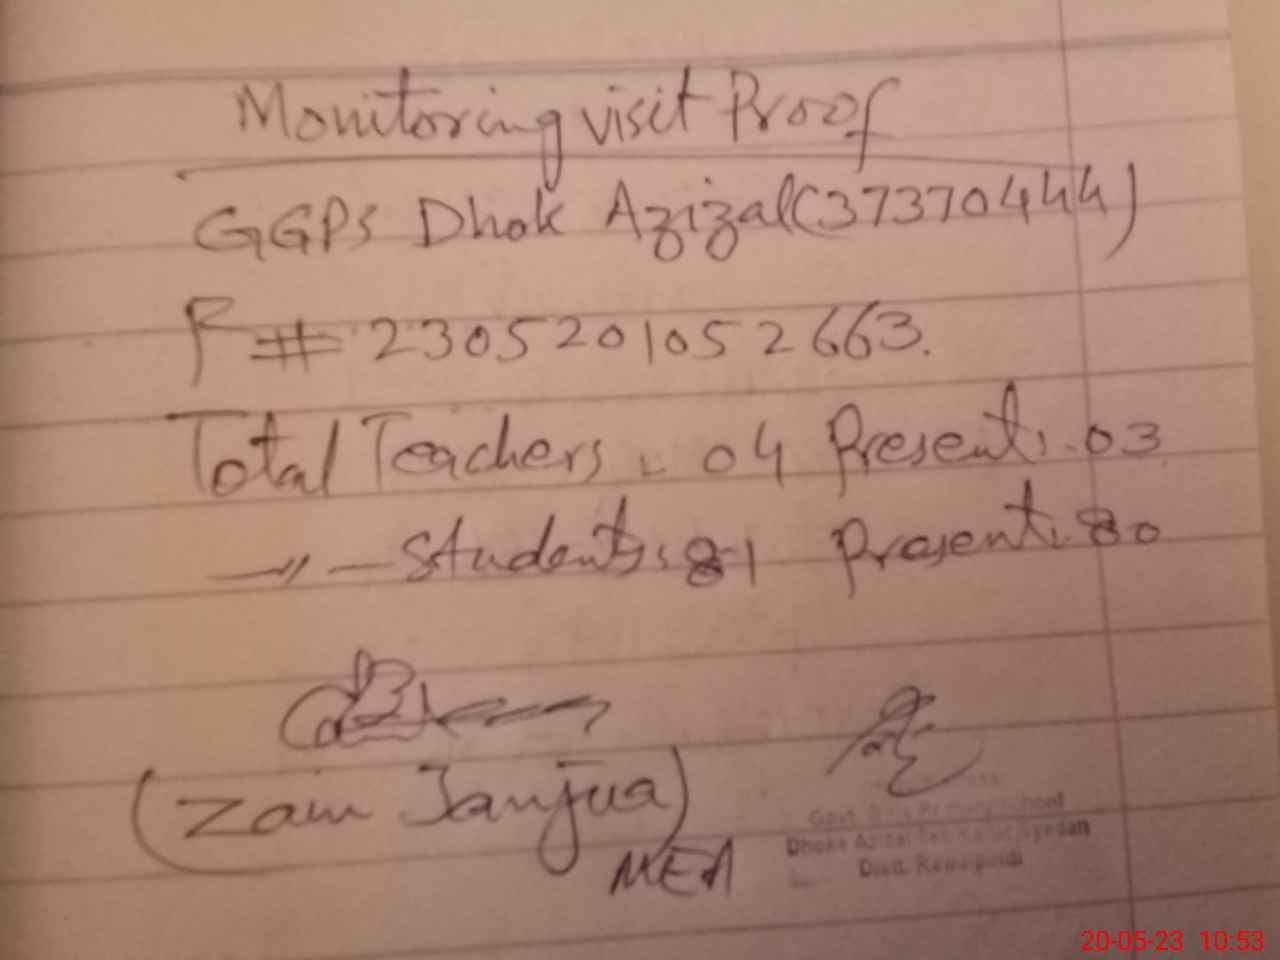 Monitoring visit Proof
GGPS Dhok Azizal (37370444)
R# 2305201052663.
Total Teachers: 04 Present: 03
-〃- Students: 81 Present: 80
(Zain Janjua)
MEA
Govt. Girls Primary School
Dhoke Azizal Kallar Syedan
Distt. Rawalpindi
20-05-23 10:53